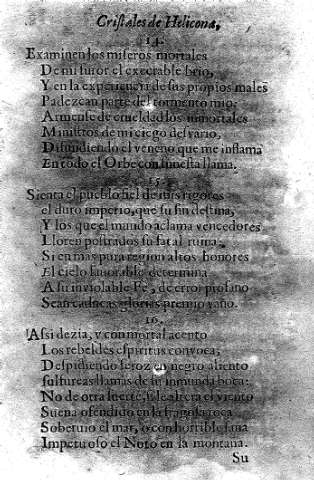 Cristales de Helicona,
14.
Examinen los miseros mortales
De mi furor el execrable brio,
Y en la experiencia de sus propios males
Padezcan parte del tormento mio:
Armense de crueldad los inmortales
Ministros de mi ciego desvario,
Difundiendo el veneno que me inflama
En todo el Orbe con funesta llama.
15.
Sienta el pueblo fiel de mis rigores
el duro imperio, que su fin destina,
Y los que el mundo aclama vencedores
Lloren postrados su fatal ruina;
Si en mas pura region altos honores
El cielo favorable determina
A su inviolable Fè, de error profano
Sean caducas glorias premio vano.
16.
Assi dezia, y con mortal acento
Los rebeldes espiritus convoca;
Despidiendo feroz en negro aliento
sulfureas llamas de su inmunda boca:
No de otra suerte, si le altera el viento
Suena ofendido en la fragosa roca
Sobervio el mar, o con horrible saña
Impetuoso el Noto en la montaña.
Su